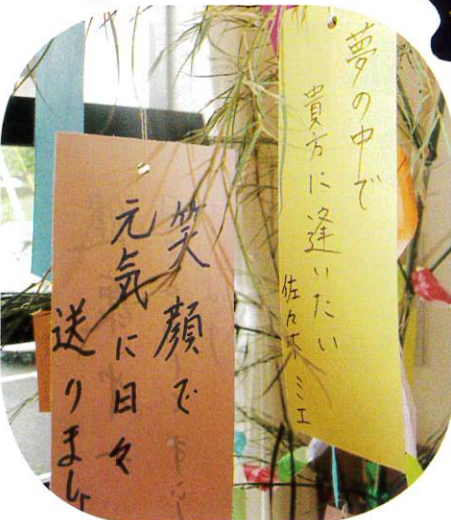 夢の中で
貴方に逢いたい
佐々木 ミエ
笑顔で
元気に日々
送りまし